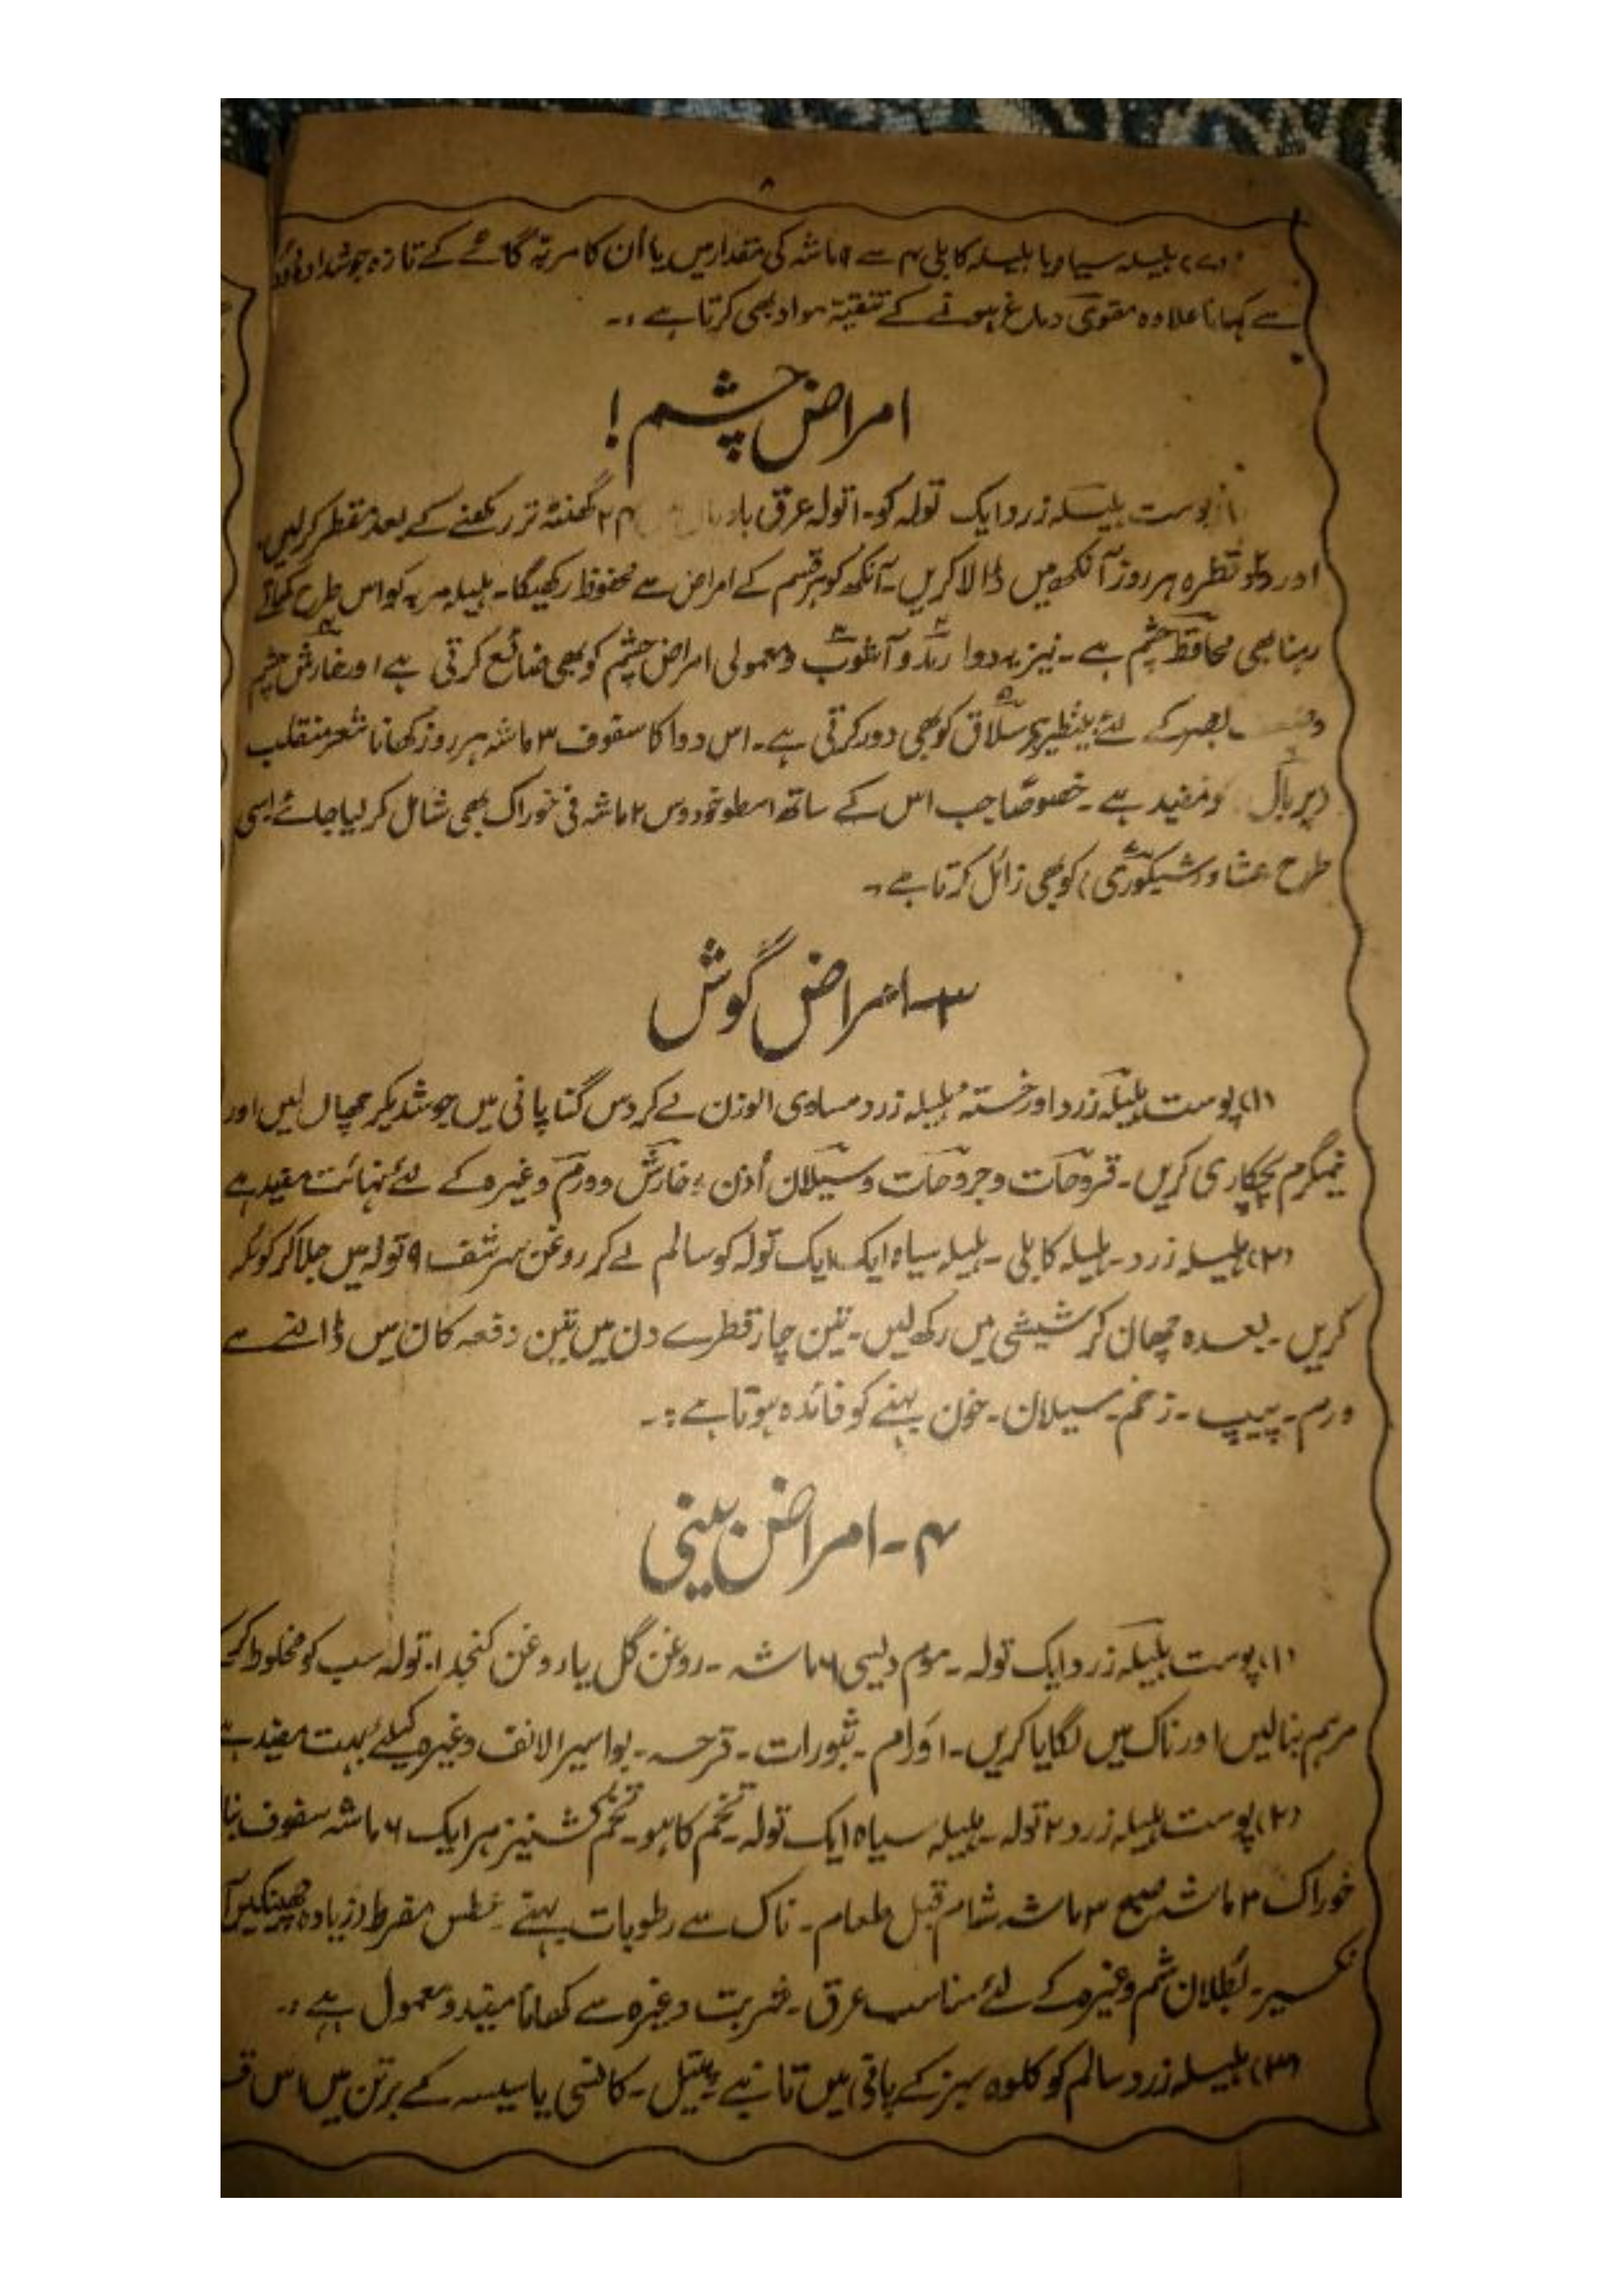 ۸
(۷) ہلیلہ سیاہ یا ہلیلہ کابلی ۴ سے ۹ ماشہ کی مقدار میں یا اُن کا مربّہ گائے کے تازہ جوشدادہ دودھ
سے کھانا علاوہ مقوی دماغ ہونے کے تنقیۂ مواد بھی کرتا ہے۔
امراض چشم!
پوست ہلیلہ زرد ایک تولہ کو ۱۰ تولہ عرق ۲۴ گھنٹہ تر رکھنے کے بعد مقطر کرلیں۔
اور دو دو قطرہ ہر روز آنکھ میں ڈالا کریں۔ آنکھ کو ہر قسم کے امراض سے محفوظ رکھیگا۔ ہلیلہ مربہ کو اس طرح کھاتے
رہنا بھی محافظ چشم ہے۔ نیز یہ دوا رمد و آشوب و معمولی امراض چشم کو بھی ضائع کرتی ہے اور خارش چشم
بصر کے لئے بینظیر ہے سلاق کو بھی دور کرتی ہے۔ اس دوا کا سفوف ۳ ماشہ ہر روز کھانا شعر منقلب
(پربال) کو مفید ہے۔ خصوصًا جب اس کے ساتھ اسطوخودوس ۲ ماشہ فی خوراک بھی شامل کر لیا جائے اسی
طرح عشا (شبکوری) کو بھی زائل کرتا ہے۔
۳- امراض گوش
(۱) پوست ہلیلہ زرد اور خستہ ہلیلہ زرد مساوی الوزن لے کر دس گنا پانی میں جوشدیکر چھان لیں اور
نیمگرم پچکاری کریں۔ قروحات و جروحات و سیلان اُذن۔ خارش و ورم وغیرہ کے لئے نہائت مفید ہے
(۲) ہلیلہ زرد۔ ہلیلہ کابلی۔ ہلیلہ سیاہ ایک ایک تولہ کو سالم لے کر روغن سرشف ۹ تولہ میں جلا کر کوئلہ
کریں۔ بعدہ چھان کر شیشی میں رکھ لیں۔ تین چار قطرے دن میں تین دفعہ کان میں ڈالنے سے
ورم۔ پیپ۔ زخم۔ سیلان۔ خون بہنے کو فائدہ ہوتا ہے۔
۴- امراض بینی
(۱) پوست ہلیلہ زرد ایک تولہ۔ موم دیسی ۶ ماشہ۔ روغن گل یا روغن کنجد ۱۰ تولہ سب کو مخلوط کرکے
مرہم بنالیں اور ناک میں لگایا کریں۔ اَورام۔ ثبورات۔ قرحہ۔ بواسیر الانف وغیرہ کیلئے بہت مفید ہے
(۲) پوست ہلیلہ زرد ۲ تولہ۔ ہلیلہ سیاہ ایک تولہ۔ تخم کاہو۔ تخم کشنیز ہر ایک ۶ ماشہ سفوف بنا
خوراک ۳ ماشہ صبح ۳ ماشہ شام قبل طعام۔ ناک سے رطوبات بہنے عطس مفرط (زیادہ چھینکیں آ
نکسیر۔ بُطلان شم وغیرہ کے لئے مناسب عرق۔ شربت وغیرہ سے کھانا مفید و معمول ہے۔
(۳) ہلیلہ زرد سالم کو کلوہ سبز کے پانی میں تانبے پیتل۔ کانسی یا سیسہ کے برتن میں اس